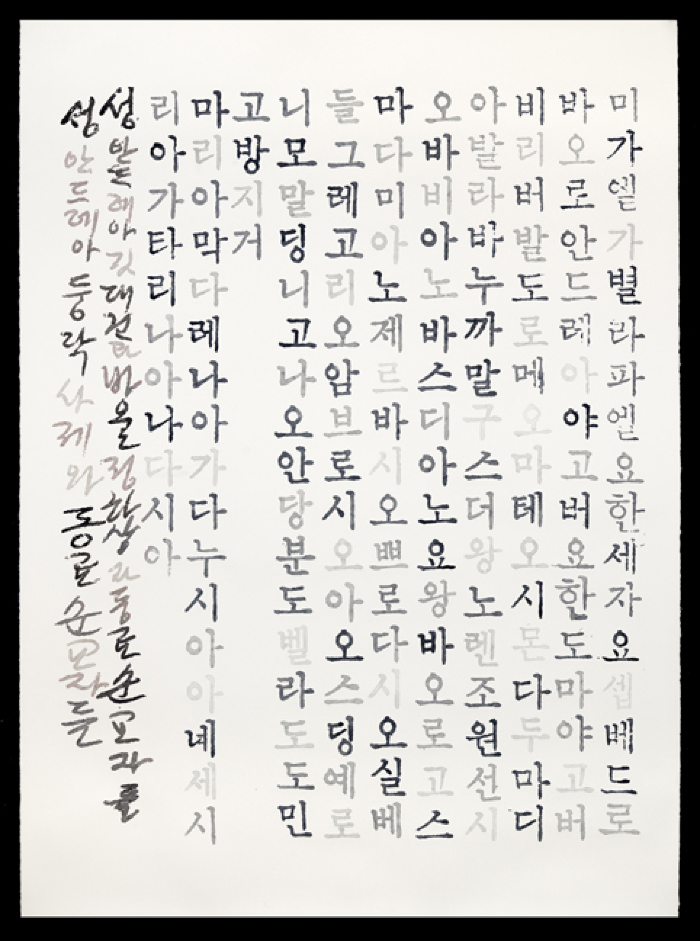 미가엘가별라파엘요한세자요셉베드로
바오로안드레아야고버요한도마야고버
비리버발도로메오마테오시몬다두마디
아발라바누까말구스더왕노렌조원선시
오바비아노바스디아노요왕바오로고스
마다미아노제르바시오쁘로다시오실베
들그레고리오암브로시오아오스딩예로
니모말딩니고나오안당분도벨라도도민
고방지거
마리아막다레나아가다누시아아녜세시
리아가타리나아나다시아
성 안드레아 김대건과 바울 정하상과 동료 순교자들
성 안드레아 둥락 사제와 동료 순교자들